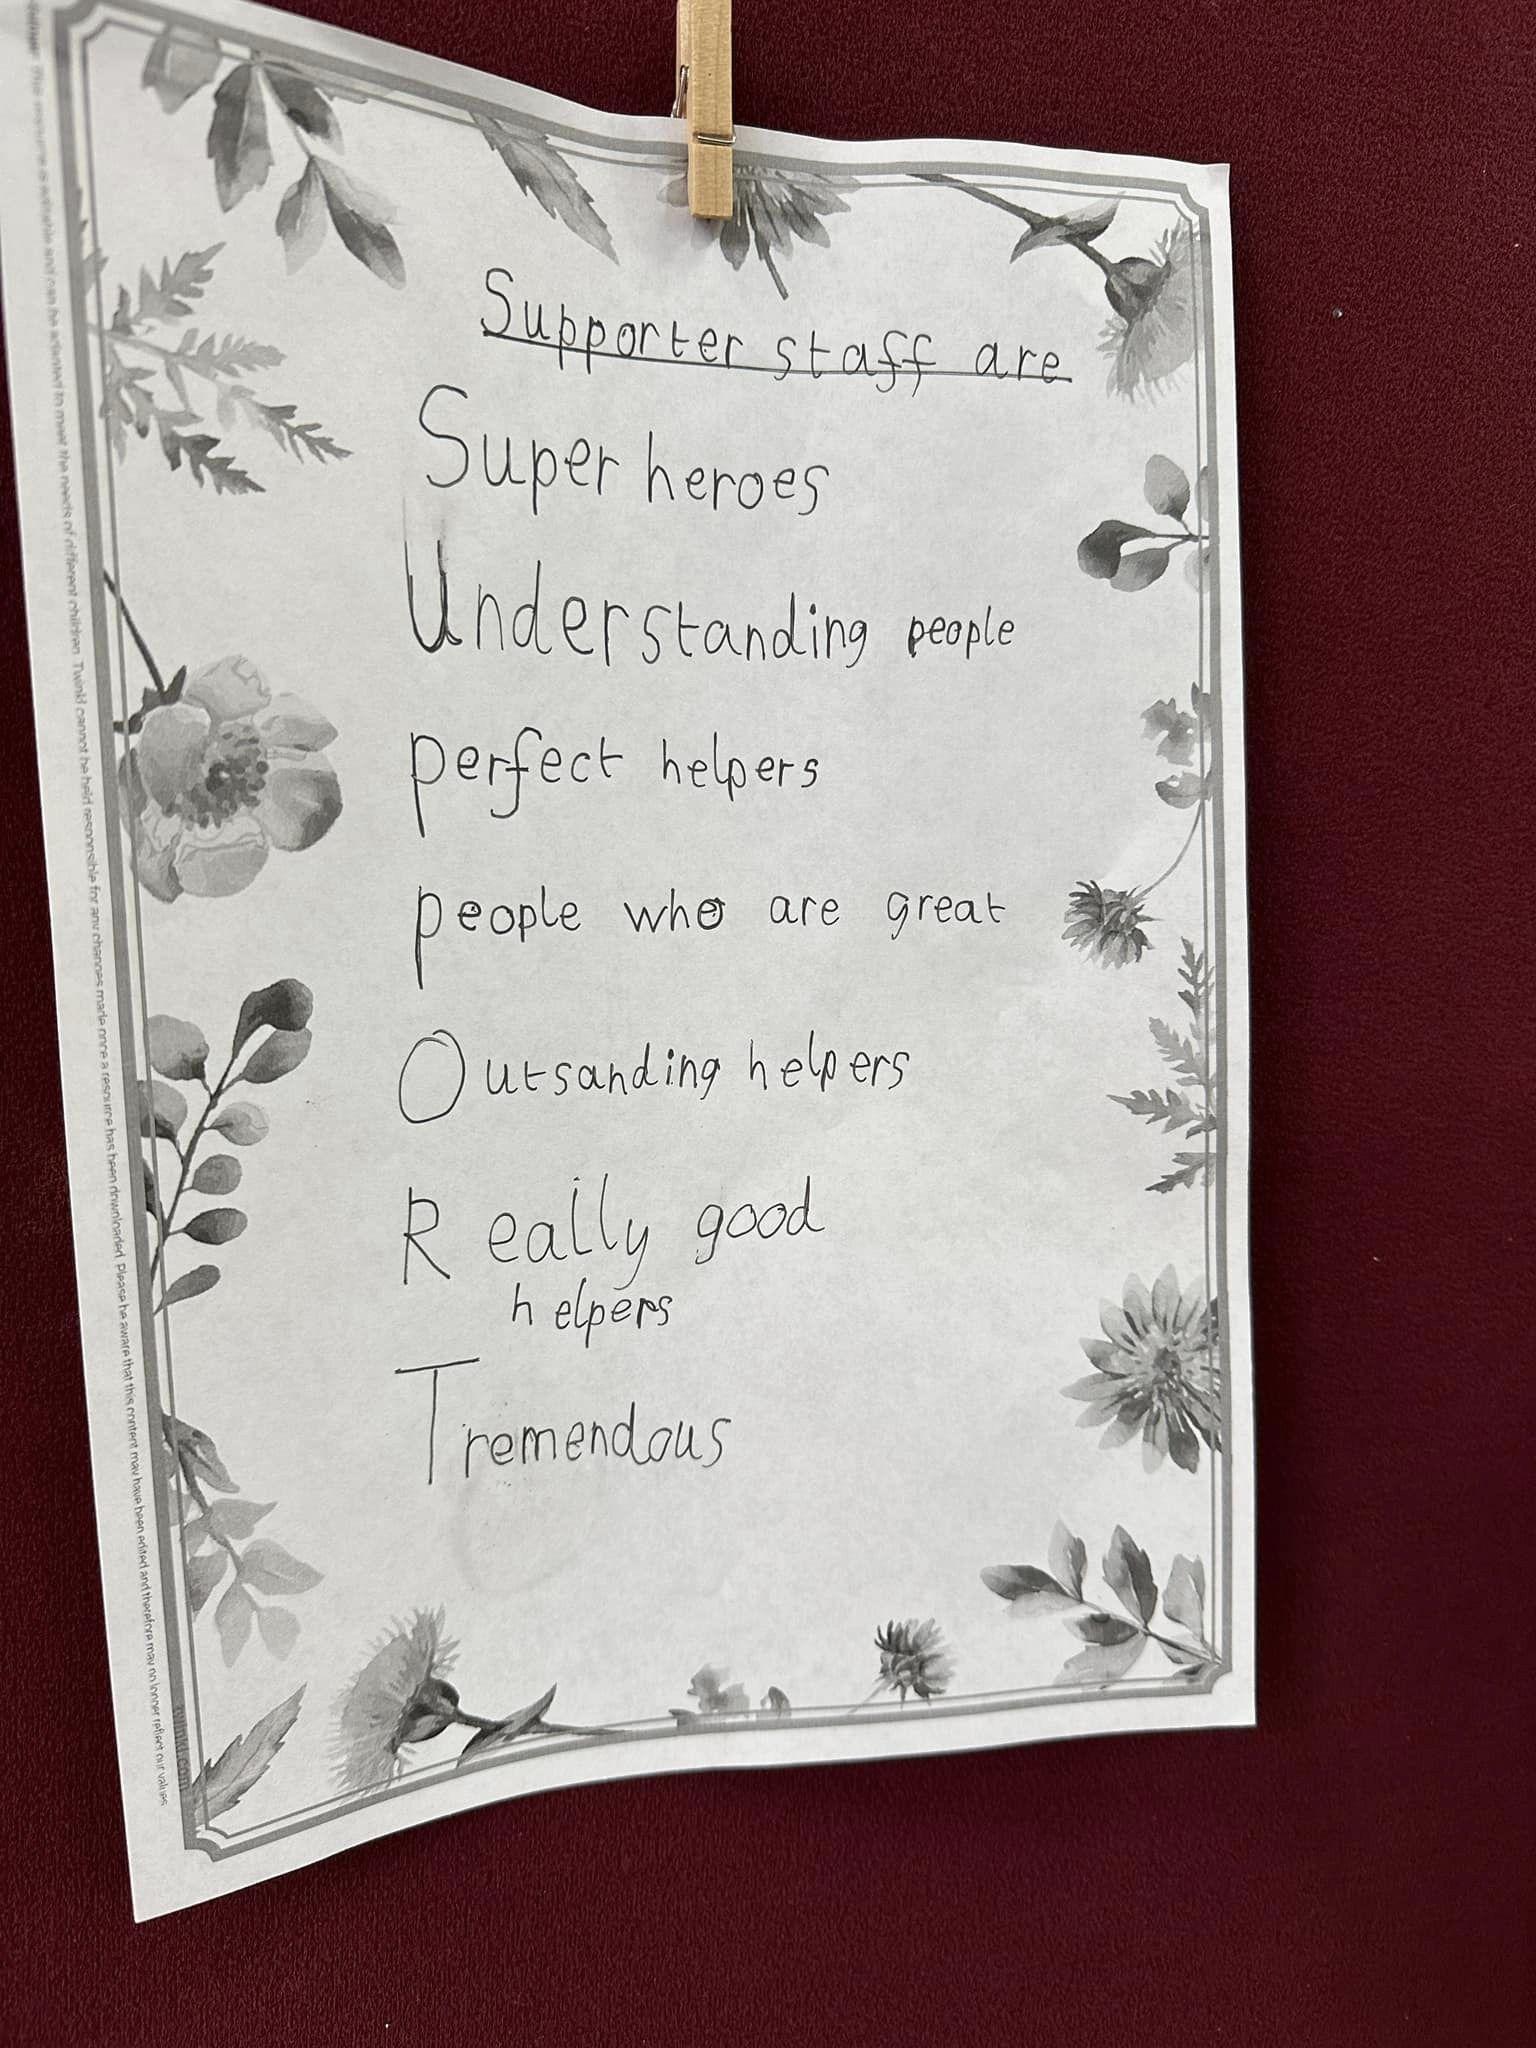 Supporter staff are
Super heroes
Understanding people
perfect helpers
people who are great
Outsanding helpers
Really good
helpers
Tremendous
This resource is editable and can be adapted to meet the needs of different children. Twinkl cannot be held responsible for any changes made once a resource has been downloaded. Please be aware that this content may have been edited and therefore may no longer reflect our values
twinkl.com